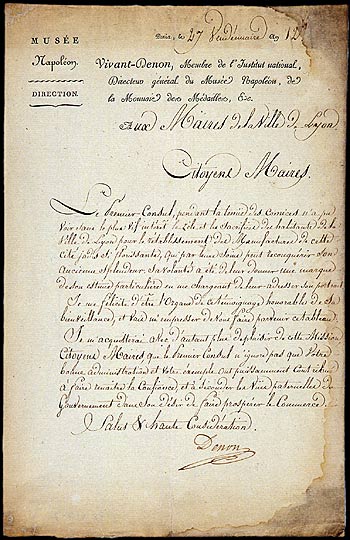 MUSÉE
Napoléon.
DIRECTION.
Paris, le 27 Vendémiaire an 12
Vivant-Denon, Membre de l'Institut national,
Directeur général du Musée Napoléon, de
la Monnaie des Médailles, &c.
Aux Maires de la Ville de Lyon
Citoyens Maires.
Le Premier Consul, pendant la tenue des comices n'a pu
voir sans le plus vif intérêt le zèle et les sacrifices des habitants de la
Ville de Lyon pour le rétablissement des Manufactures de cette
cité jadis si florissante, qui par leurs soins peut reconquérir son
Ancienne Splendeur. Sa volonté a été de leur donner une marque
de son estime particulière en me chargeant de leur adresser son portrait
Je me félicite d'être l'Organe de ce témoignage honorable de Sa
bienveillance, et vais m'empresser de vous faire parvenir ce tableau.
Je m'acquitterai avec d'autant plus de plaisir de cette Mission
Citoyens Maires que le Premier Consul n'ignore pas que Votre
bonne administration et Votre exemple ont puissamment contribué
à faire renaître la Confiance, et à seconder les Vues paternelles du
Gouvernement dans son désir de faire prospérer le Commerce.
Salut & haute Considération
Denon